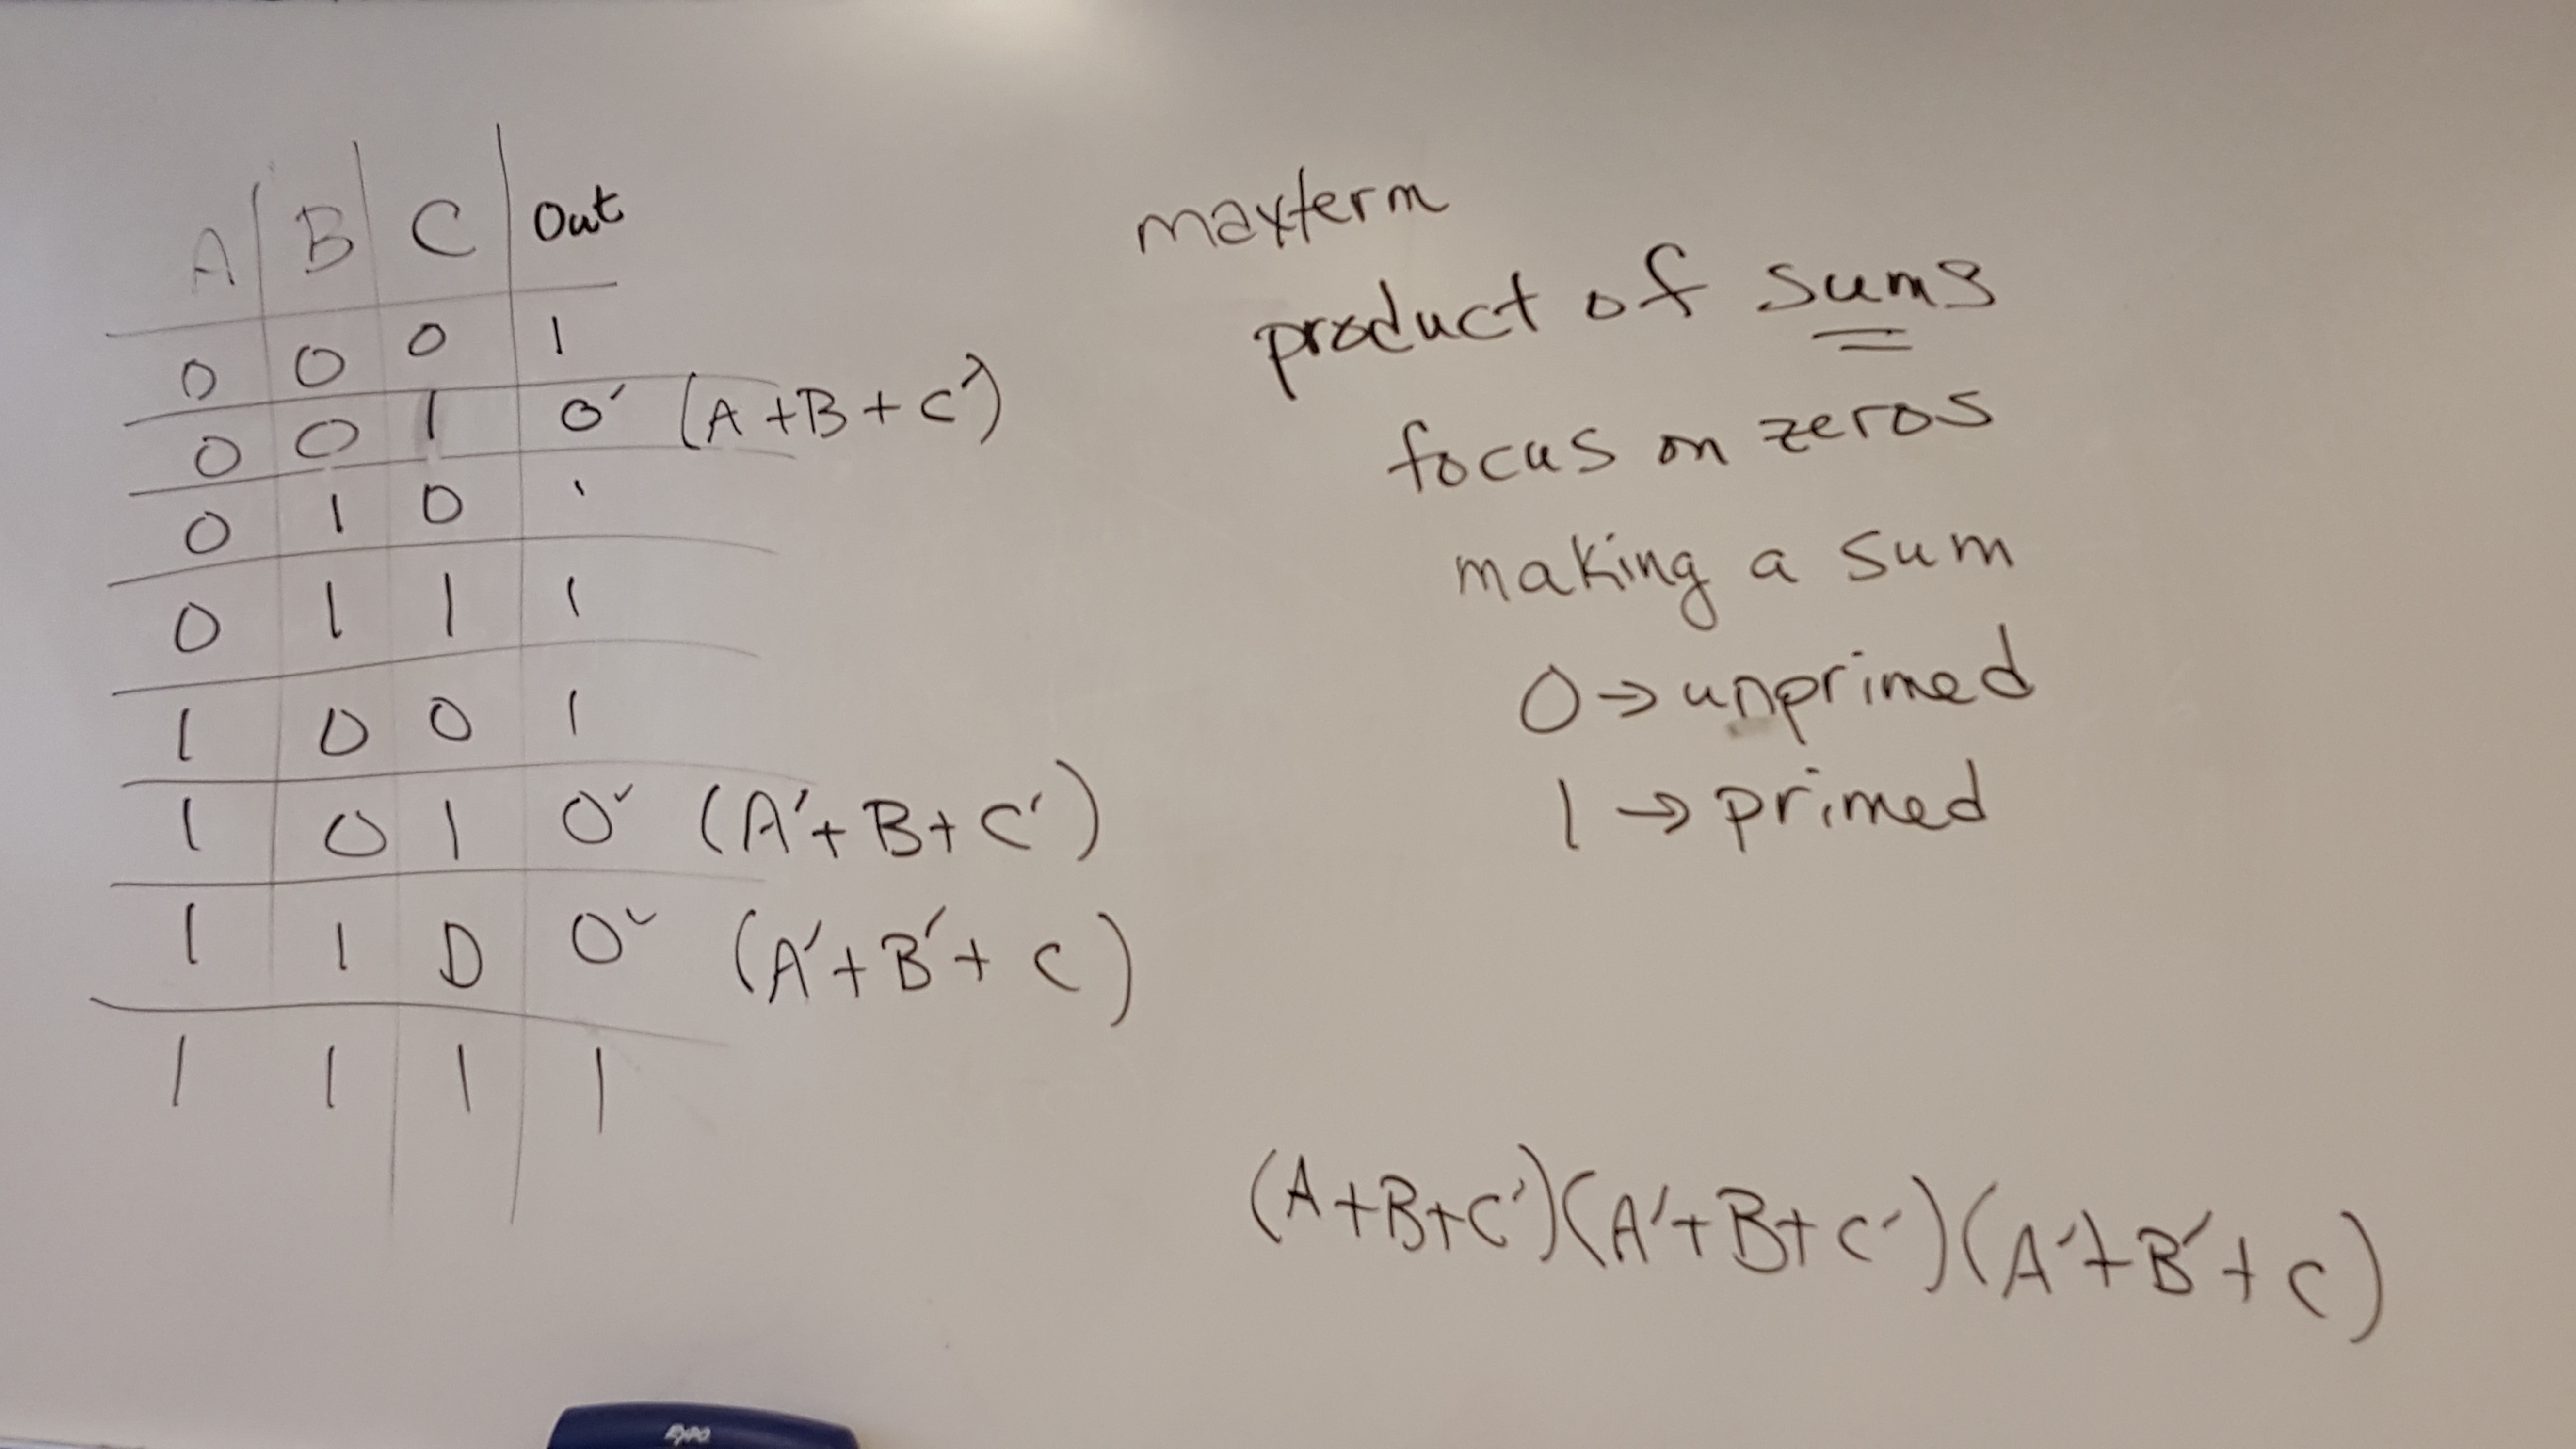 A B C Out
0 0 0 1
0 0 1 0 (A+B+C')
0 1 0 1
0 1 1 1
1 0 0 1
1 0 1 0 (A'+B+C')
1 1 0 0 (A'+B'+C)
1 1 1 1
maxterm
product of sums
focus on zeros
making a sum
0→unprimed
1→primed
(A+B+C')(A'+B+C')(A'+B'+C)
EXPO